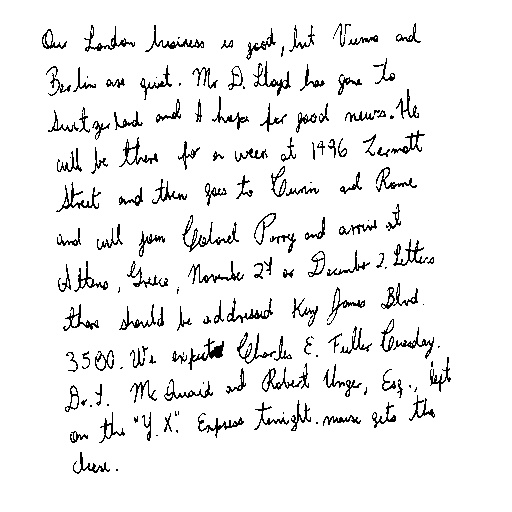 Our London business is good, but Vienna and
Berlin are quiet. Mr D. Lloyd has gone to
Switzerland and I hope for good news. He
will be there for a week at 1496 Zermott
Street and then goes to Turin and Rome
and will join Colonel Parry and arrive at
Athens, Greece, November 27 or December 2. Letters
there should be addressed King James Blvd.
3580. We expect Charles E. Fuller Tuesday.
Dr. L. Mc Quaid and Robert Unger, Esq., left
on the "Y. X." Express tonight. mouse gets the
chese.